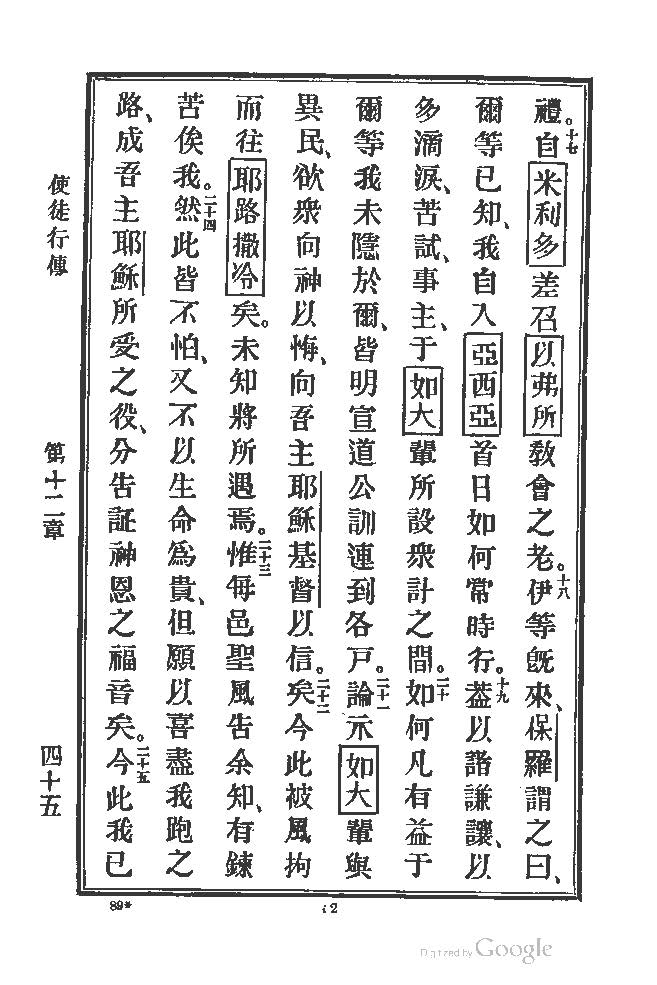 禮。十七自米利多差召以弗所教會之老。十八伊等既來、保羅謂之曰、
爾等已知、我自入亞西亞首日如何常時行。十九葢以諧謙讓、以
多滴淚、苦試、事主、于如大輩所設衆計之間。二十如何凡有益于
爾等我未隱於爾、皆明宣道公訓連到各戸。二十一論示如大輩與
異民、欲衆向神以悔、向吾主耶穌基督以信。二十二矣今此被風拘
而往耶路撒冷矣。未知將所遇焉。二十三惟每邑聖風告余知、有鍊
苦俟我。二十四然此皆不怕、又不以生命為貴、但願以喜盡我跑之
路、成吾主耶穌所受之役、分告証神恩之福音矣。二十五今此我已
使徒行傳
第十二章
四十五
89*
i2
Digitized by Google